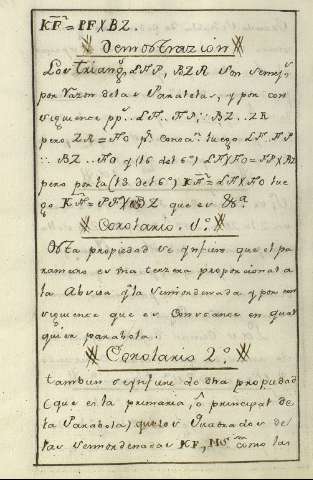 KF² = PF X BZ.
Demostrazion
Los triang.s LFP, BZR son semej.s
por razon de las Paralelas, y por con
siguiente pp.s LF..FP, :: BZ..ZR
pero ZR = FO p.r luego LF..FP
:: BZ..FO y (16 del 6º) LFXFO = FPXBZ
pero por la (13 del 6º) KF² = LFXFO lue
go KF² = PFXBZ que es &ª.
Corolario. 1º.
Desta propiedad se ynfiere que el pa
rametro es una tercera proporcional a
la Abscisa y la semiordenada y por con
siguiente que es Constante en qual
quier parabola.
Corolario 2º.
tambien se ynfiere de dha propiedad
(que es la primaria, ó principal de
la Parabola) que los Quadrados de
las semiordenadas KF, como las